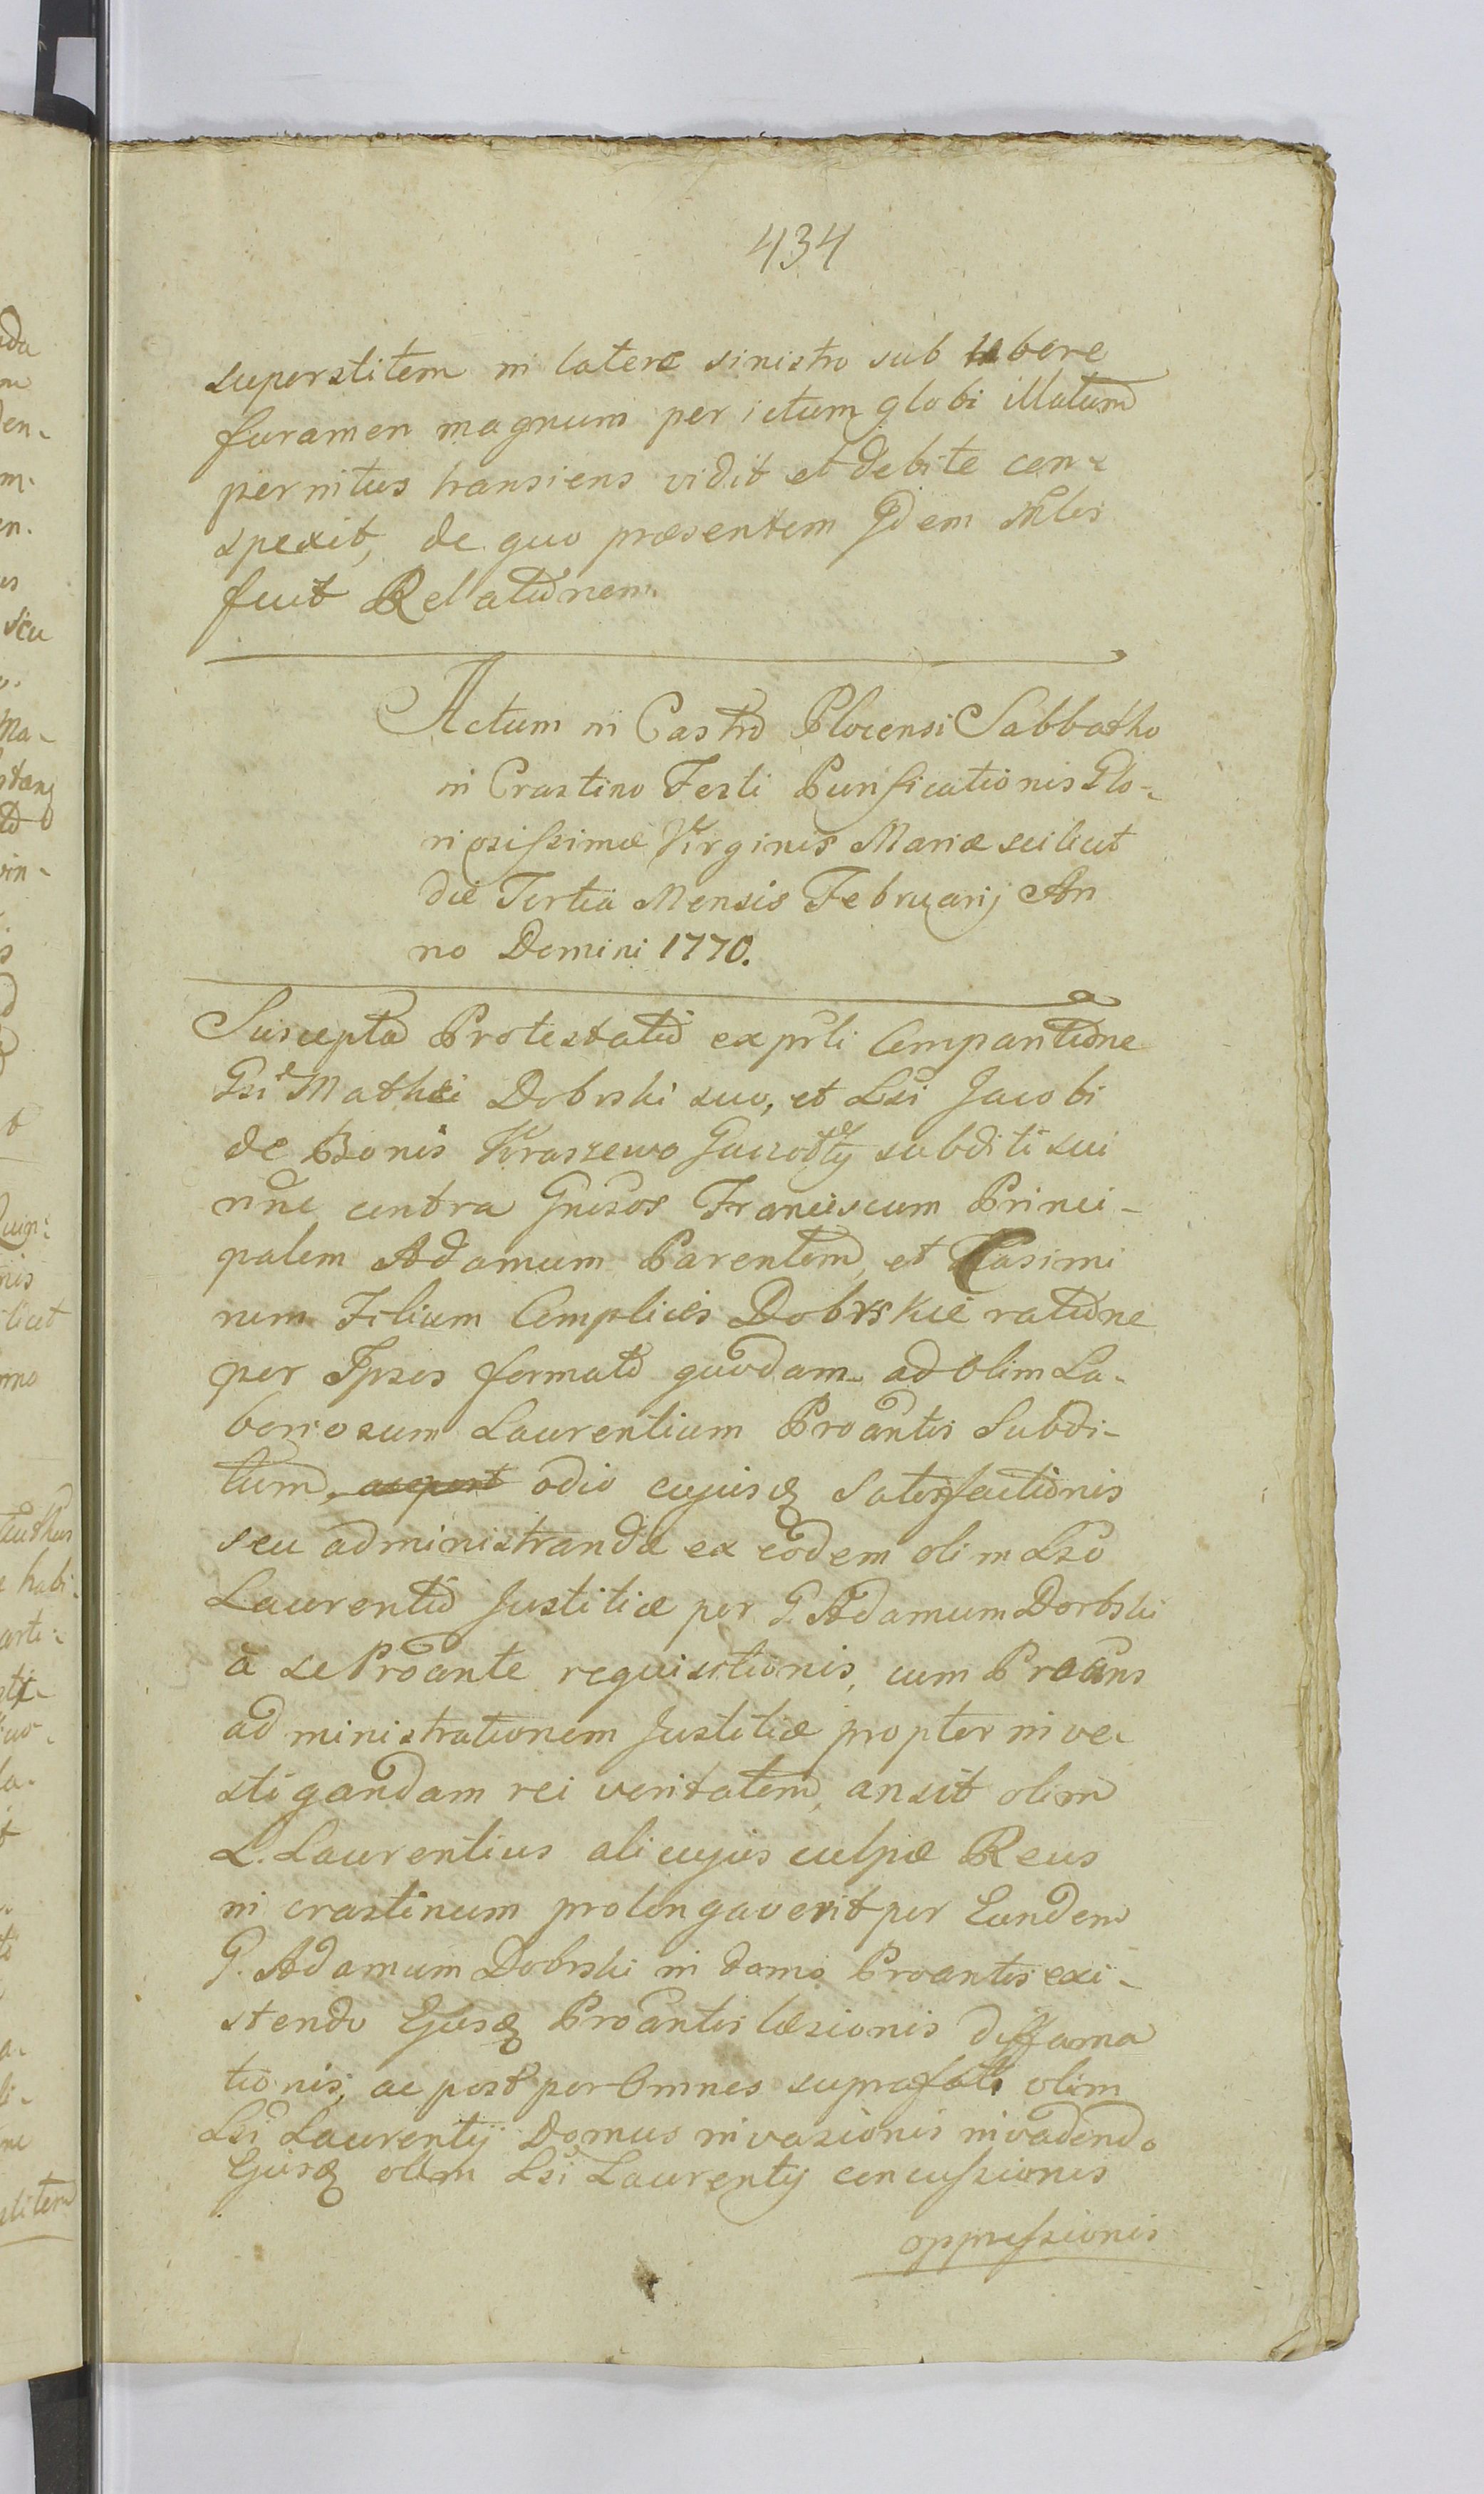 434
superstitem in latere sinistro sub ubere
furamen magnum per ictum globi illatum
pernitus transiens vidit et debite con-
spexit, de quo præsentem Idem Mlis
fuit Relationem.
Actum in Castro Plocensi Sabbatho
in Crastino Festi Purificationis Glo-
riosissimæ Virginis Mariæ scilicet
die Tertia Mensis Februarij An
no Domini 1770.
Suscepta Protestatio ex prsli Comparitione
Gsi Mathæi Dobrski suo, et Lsi Jacobi
de Bonis Kraszewo subditi sui
nne contra Gnesos Franciscum Princi-
palem Adamum Parentem, et Casimi
rum Filium Complices Dobrskie ratione
per Ipsos formato quodam ad olim La-
boriosum Laurentium Proantis Subdi-
tum, acpost odio cujusq Satisfactionis
seu administrandæ ex eodem olim Lso
Laurentio Justitiæ per G. Adamum Dorbski
a se Proante requisitionis, cum Proans
administrationem Justitiæ propter inve-
stigandam rei veritatem, an sit olim
L. Laurentius alicujus culpæ Reus
in crastinum prolongaverit per Eundem
G. Adamum Dobrski in domo Proantis exi-
stendo Ejusq Proantis læsionis diffama
tionis, ac post per Omnes suprafati olim
Lsi Laurentij Domus invasionis invadendo
Ejusq olim Lsi Laurentij concussionis
oppressionis